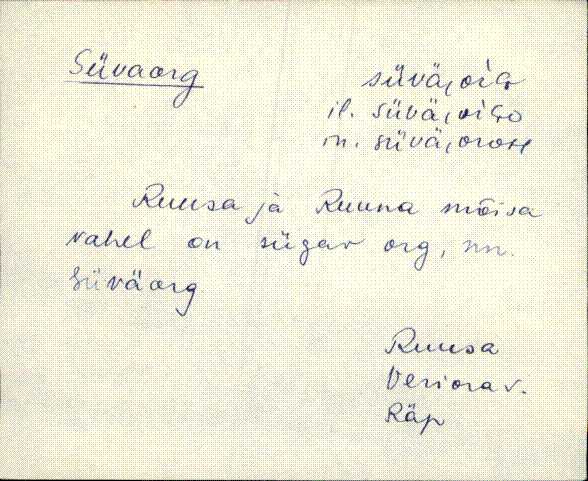 Süvaorg
süväˌoŕG
il. süväˌoŕGo
in. süväˌoroH
Ruusa ja Ruuna mõisa
vahel on sügav org, nn.
Süväorg
Ruusa
Veriora v.
Räp